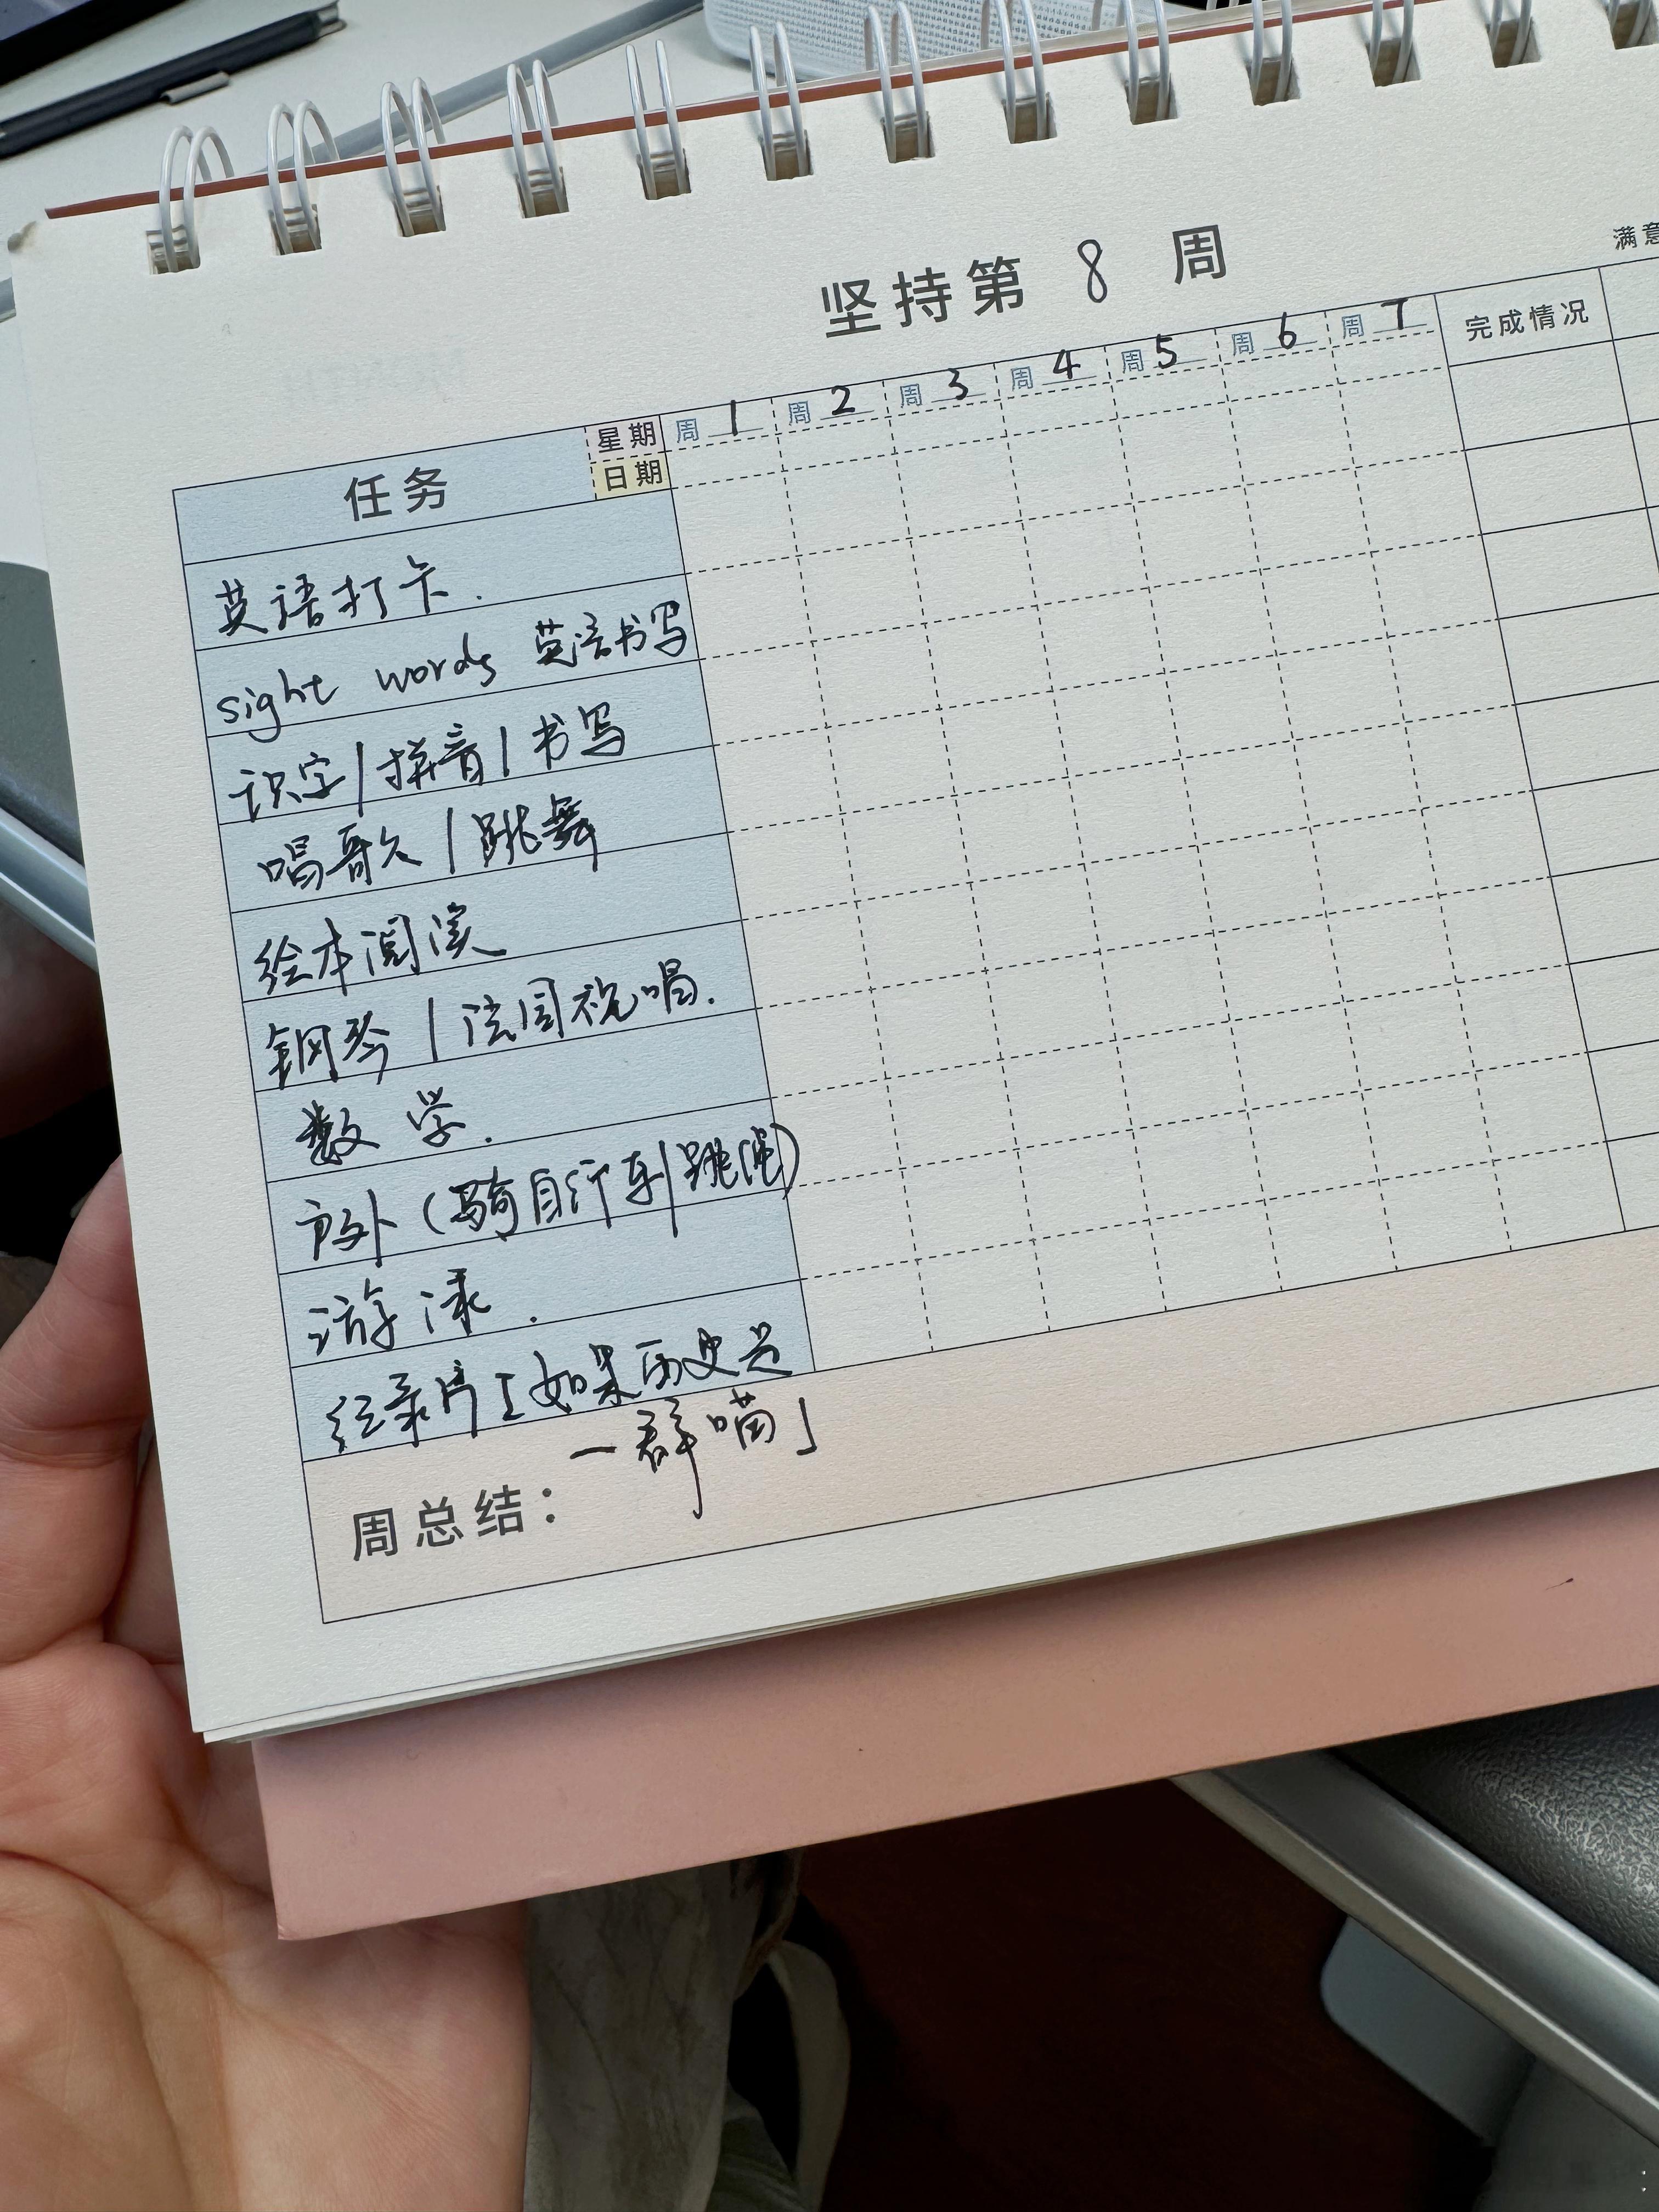 坚持第 8 周
满意
任务 星期 周 1 周 2 周 3 周 4 周 5 周 6 周 7 完成情况
日期
英语打卡.
sight words 英语书写
识字/拼音/书写
唱歌/跳舞
绘本阅读
钢琴/法国视唱.
数学.
户外(骑自行车/跳绳)
游泳.
纪录片「如果历史是
一群喵」
周总结: